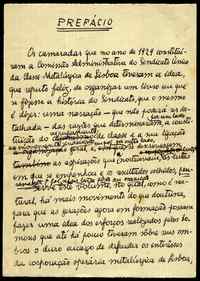 PREFÁCIO
Os camaradas que no ano de 1929 constituí-
ram a Comissão Administrativa do Sindicato Único
da Classe Metalúrgica de Lisboa tiveram a ideia,
que reputo feliz, de organizar um livro em que
se fizesse a história do Sindicato, que o mesmo
é dizer: uma narração — que não poderá ser
detalhada — das razões que determinaram a consti-
tuição do de classe e a sua ligação
as aspirações que as lutas
em que se empenhou e os resultados obtidos,
Serve este volume, no qual, como é na-
tural, há mais movimento do que doutrina,
para que as gerações agora em formação possam
fazer uma ideia dos esforços realizados pelos ho-
mens que até há pouco tiveram sobre seus om-
bros o duro encargo de defender os interesses
da corporação operária metalúrgica de Lisboa,